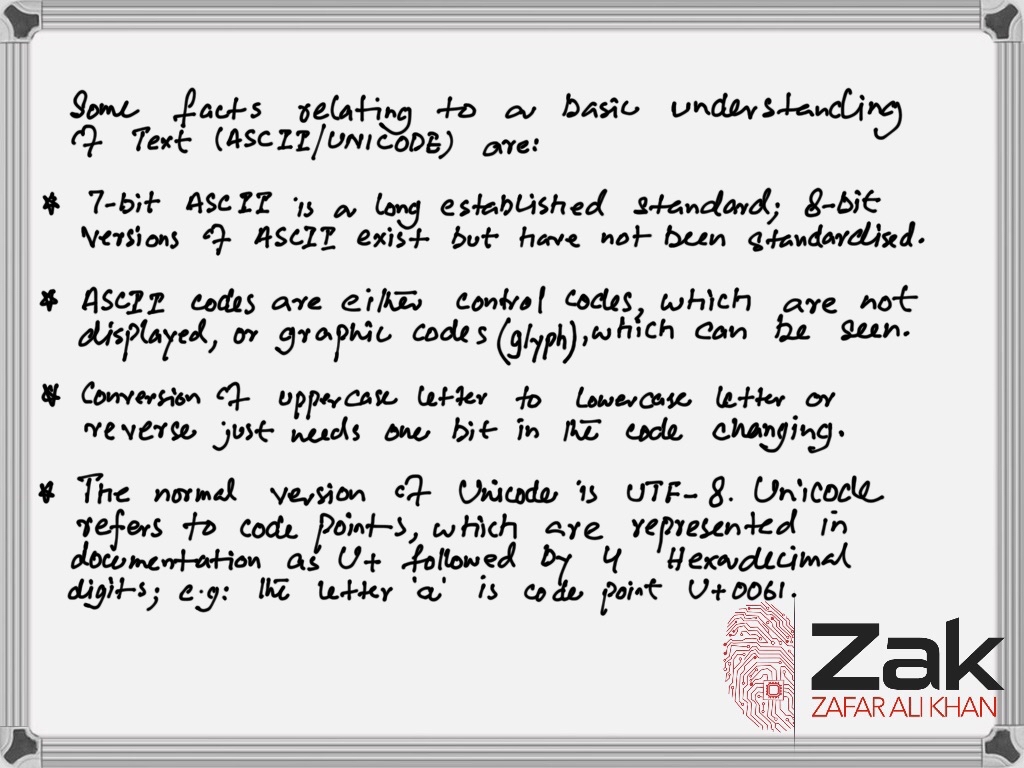 Some facts relating to a basic understanding
of Text (ASCII/UNICODE) are:
* 7-bit ASCII is a long established standard; 8-bit
versions of ASCII exist but have not been standardised.
* ASCII codes are either control codes, which are not
displayed, or graphic codes (glyph), which can be seen.
* Conversion of uppercase letter to lowercase letter or
reverse just needs one bit in the code changing.
* The normal version of Unicode is UTF-8. Unicode
refers to code points, which are represented in
documentation as U+ followed by 4 Hexadecimal
digits; e.g: the letter 'a' is code point U+0061.
Zak
ZAFAR ALI KHAN